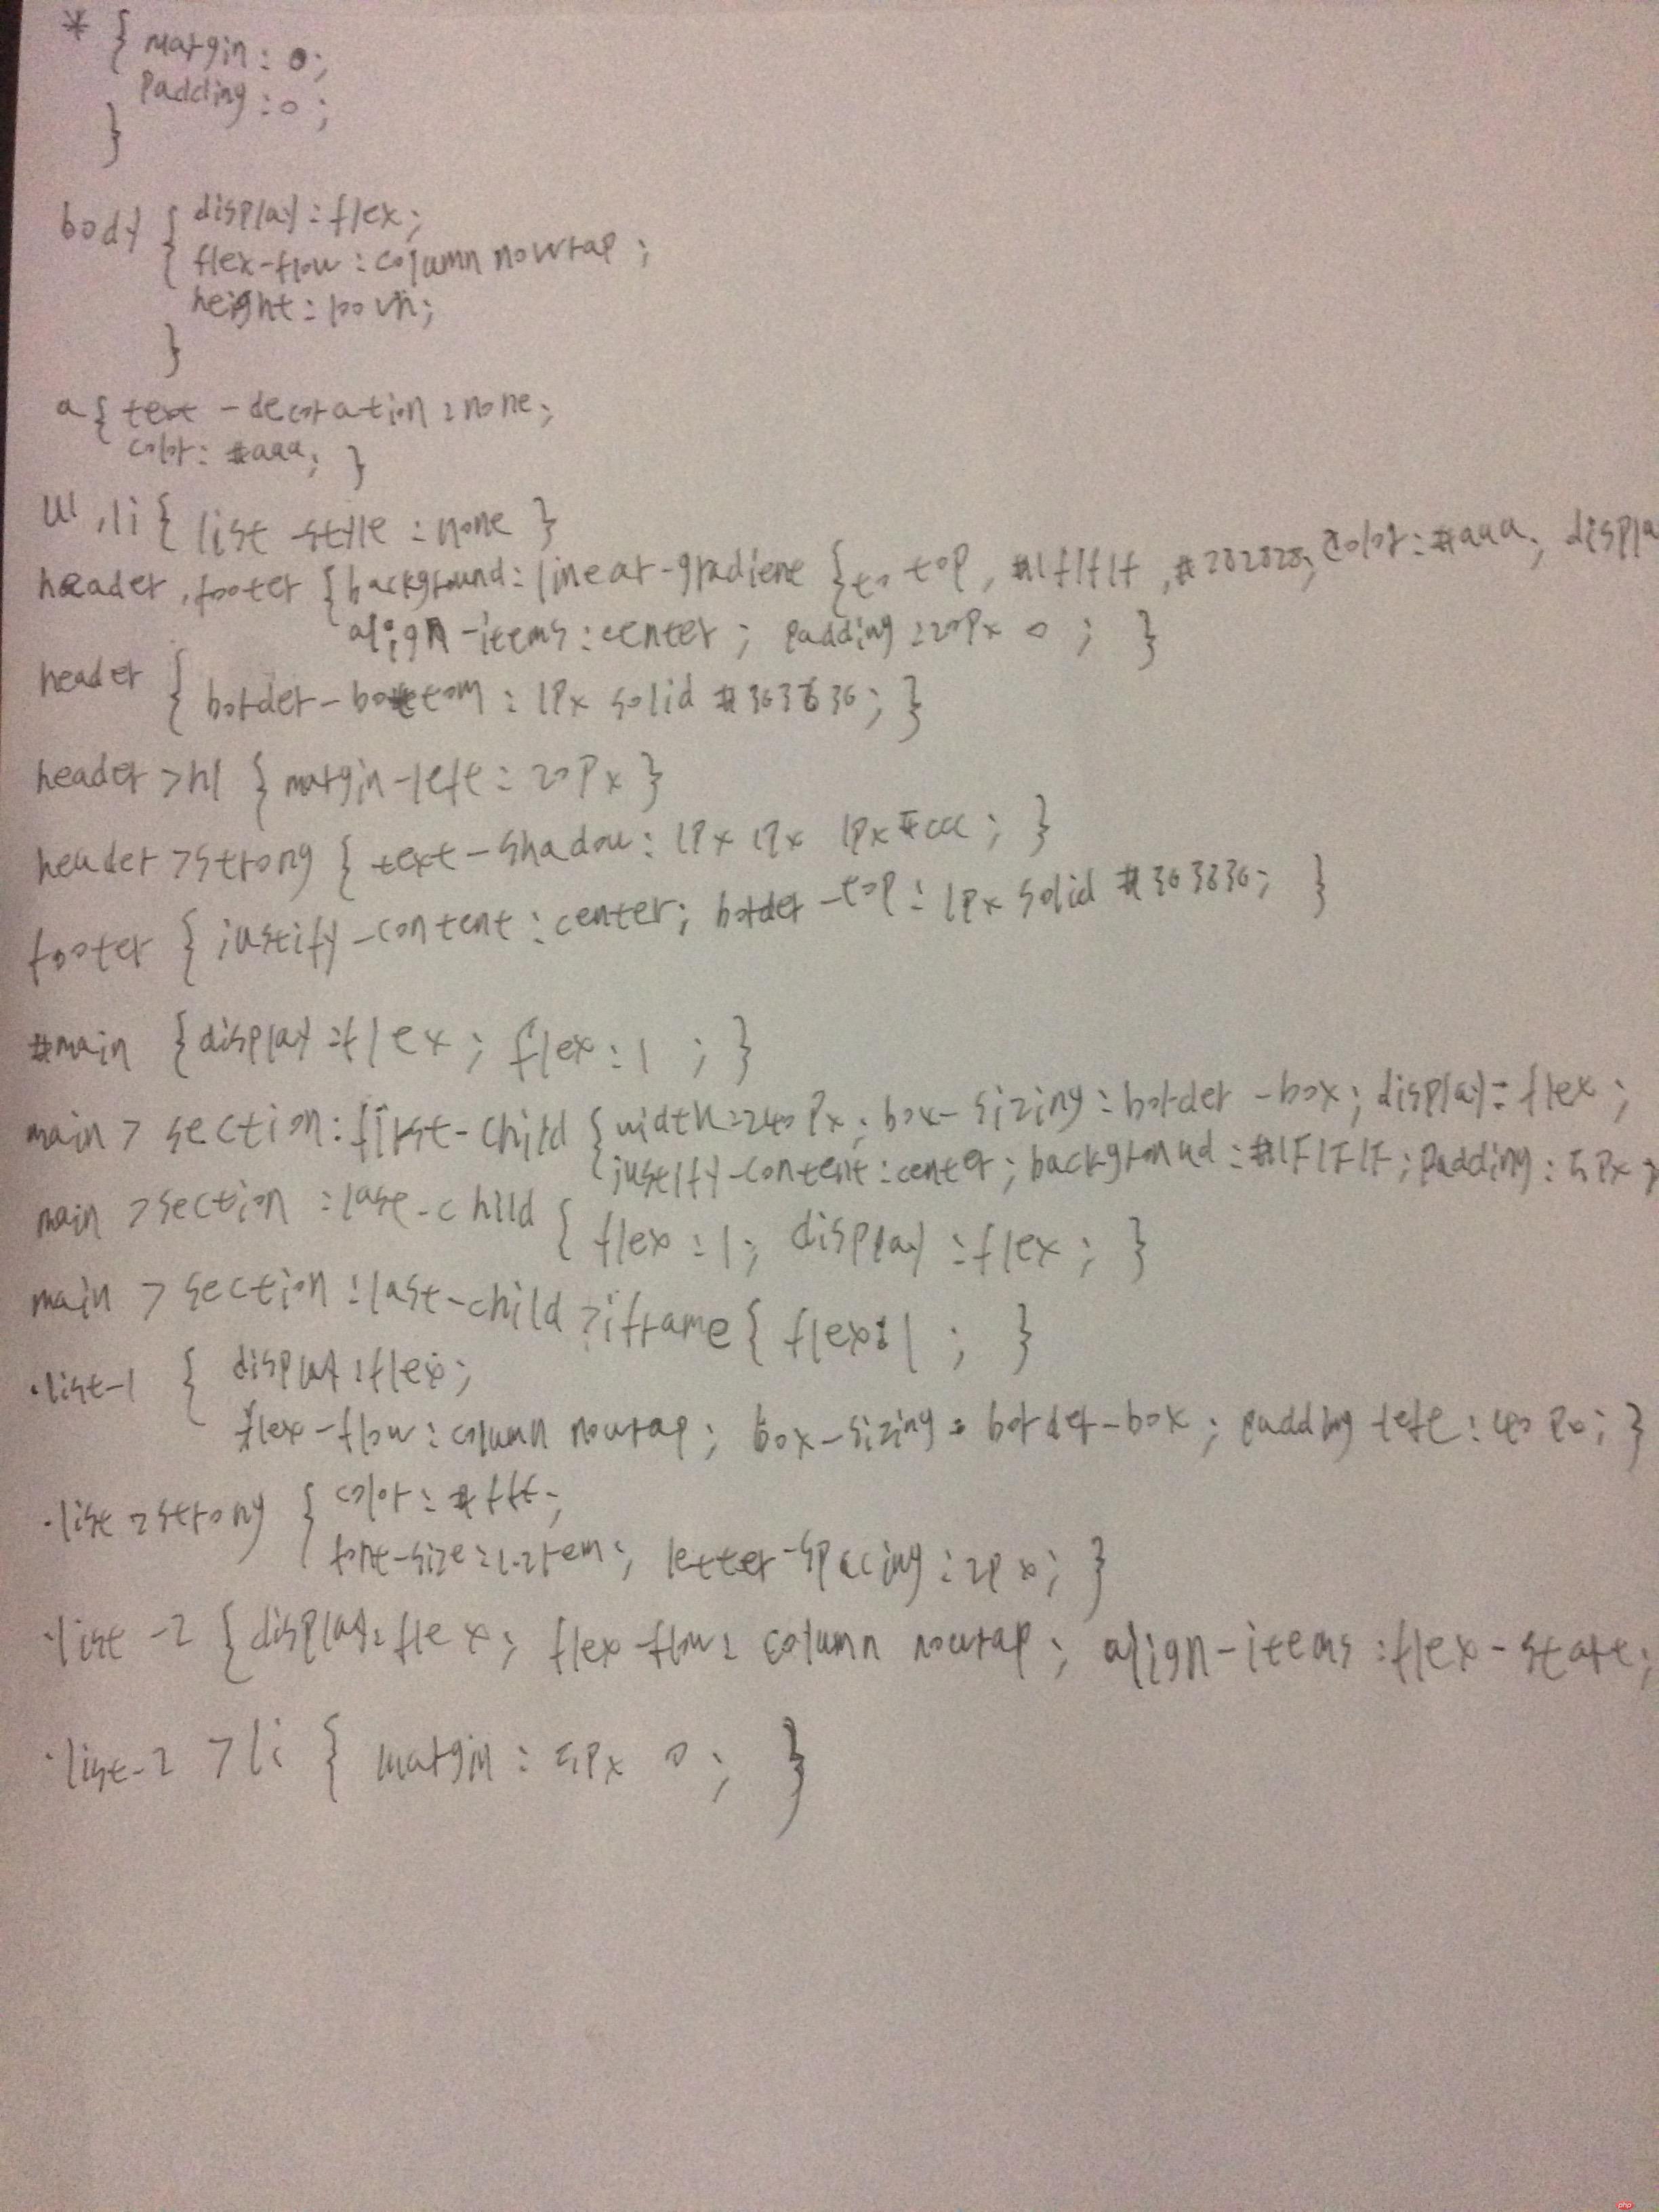 * { margin : 0;
padding : 0 ;
}
body { display : flex;
flex-flow : column nowrap ;
height : 100vh;
}
a { text - decoration : none;
color : #aaa; }
ul , li { list style : none }
header , footer { background : linear-gradient { to top , #1f1f1f , #282828; color : #aaa; displa
align-items : center ; padding : 20px 0 ; }
header { border-bottom : 1px solid #363636; }
header > h1 { margin-left : 20px }
header > strong { text-shadow : 1px 1px 1px #ccc ; }
footer { justify-content : center; border-top : 1px solid #363636; }
#main { display : flex ; flex : 1 ; }
main > section : first-child { width : 240px ; box-sizing : border -box; display : flex ;
justify-content : center ; background : #1F1F1F ; padding : 5px
main > section : last-child { flex : 1; display : flex ; }
main > section : last-child > iframe { flex : 1 ; }
.list-1 { display : flex;
flex-flow : column nowrap ; box-sizing : border-box ; padding left : 40px; }
.list > strong { color : #fff;
font-size : 1.2rem; letter-spacing : 2px; }
.list -2 { display : flex; flex-flow : column nowrap ; align-items : flex-start;
.list-2 > li { margin : 5px 0 ; }
php